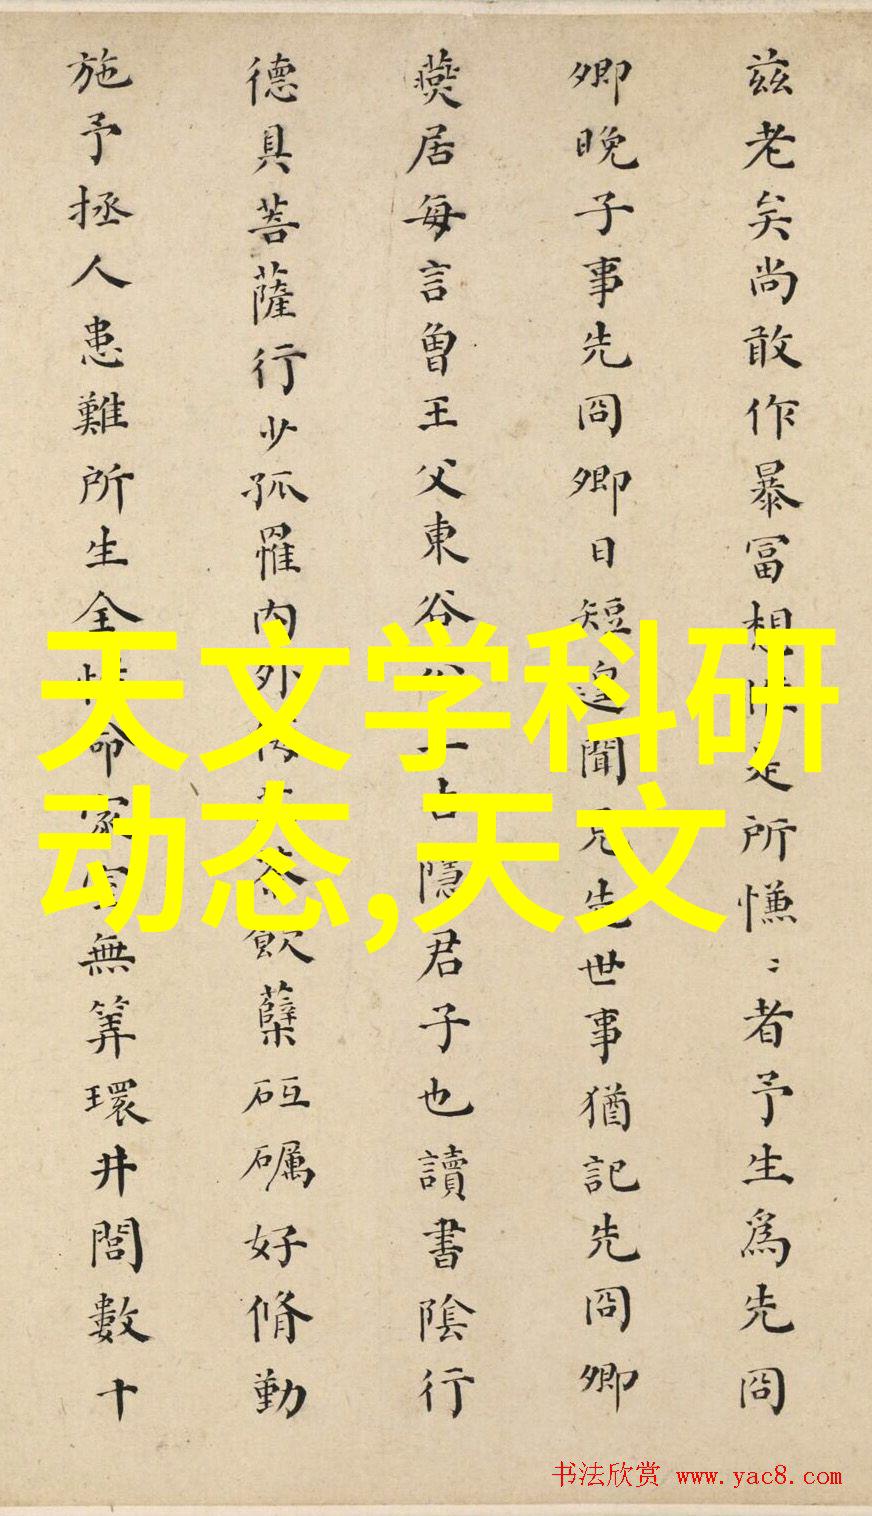 兹老矣尚敢作暴冨想惟是所慊〻者予生為先冏
卿晚子事先冏卿日短遑聞先世事猶記先冏卿
燕居每言曾王父東谷隱君子也讀書陰行
德具菩薩行少孤罹内外飲蘖砥礪好脩勤
施予拯人患難所生全命家室無筭環井閭數十
天文学科研
动态,天文
书法欣赏 www.yac8.com